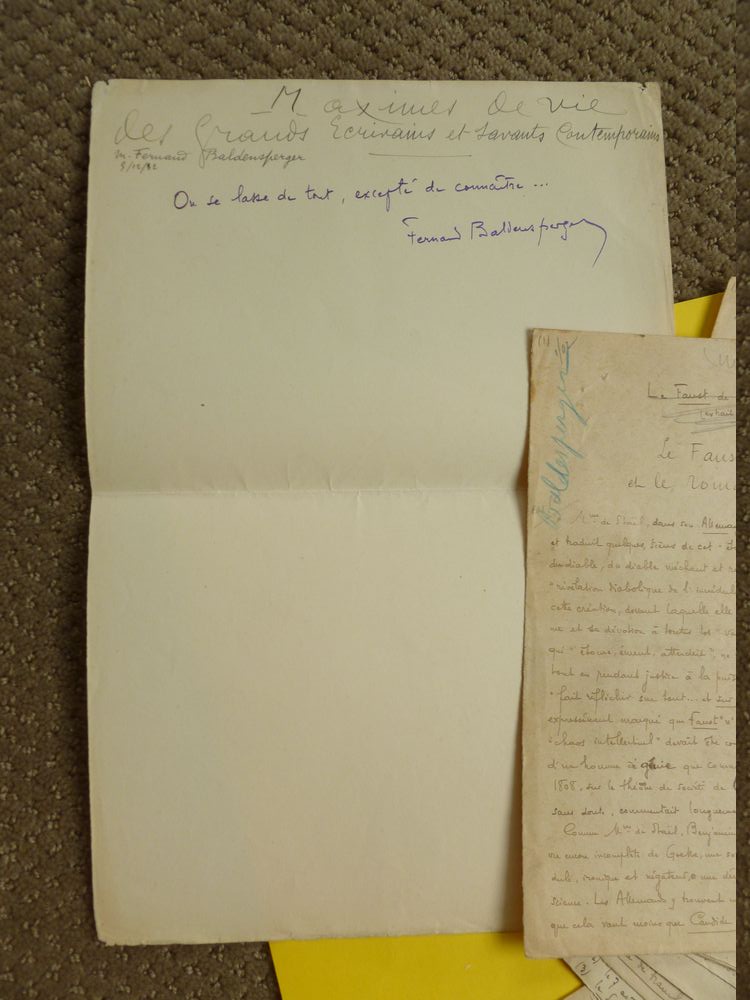 Maximes de vie
des Grands Ecrivains et Savants Contemporains
M. Fernand Baldensperger
On se lasse de tout, excepté de connaître ...
Fernand Baldensperger
(1)
Baldensperger
Le Faust de
Le Faus
et le rom
Mme de Staël, dans son Alleman
et traduit quelques scènes de cet
du diable, du diable méchant et
"révélation diabolique de l'incrédul
cette création, devant laquelle elle
me et sa dévotion à toutes les
qui "étonne, émeut, attendrit",
tout en rendant justice à la
"fait réfléchir sur tout... et sur
expressément marqué que Faust
"chaos intellectuel" devait être co
d'un homme de génie que
1808, sur le théâtre de société de
sans doute, commentait longuem
Comme Mme de Staël, Benjamin
encore incomplète de Goethe, une
ironique et une
science. Les Allemands y trouvent
que cela vaut moins que Candide